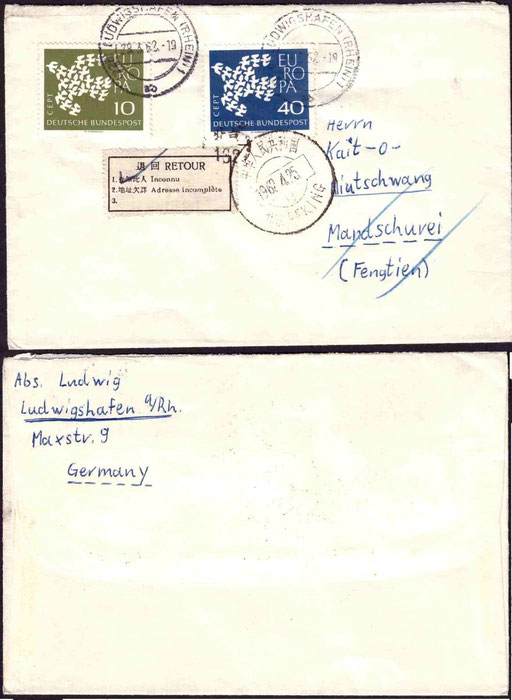 LUDWIGSHAFEN (RHEIN) 1
.62.-19
LUDWIGSHAFEN (RHEIN) 1
62.-19
CEPT
EUROPA
10
DEUTSCHE BUNDESPOST
CEPT
EUROPA
40
DEUTSCHE BUNDESPOST
退回 RETOUR
1. 人 Inconnu
2. 地址欠詳 Adresse incomplète
3.
162
人民共
1962.4.25
KING
Herrn
Kait-o-
Mintschwang
Mandschurei
(Fengtien)
Abs. Ludwig
Ludwigshafen a/Rh.
Maxstr. 9
Germany